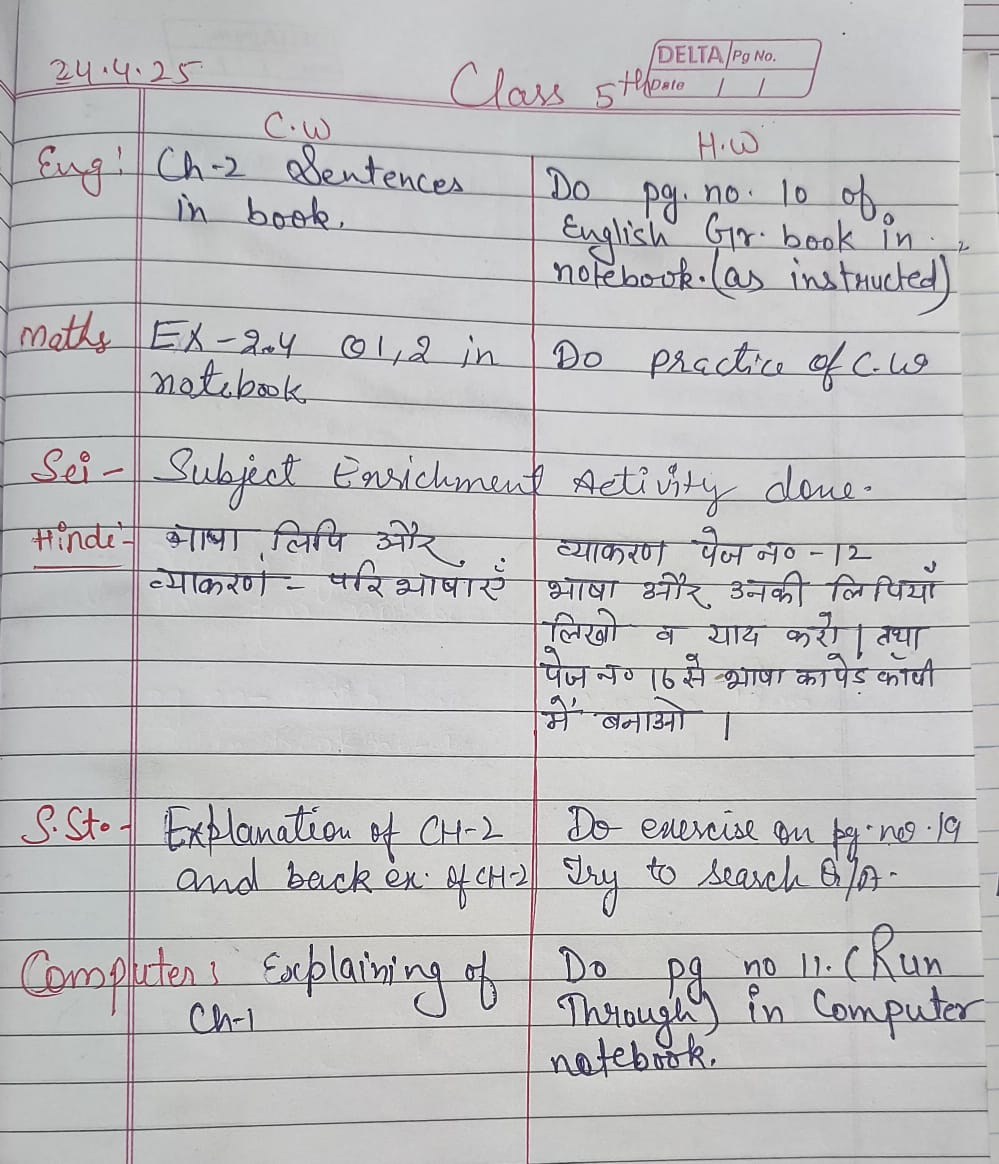 24.4.25
Class 5th
DELTA/Pg No.
Date / /
C.W
H.W
Eng: Ch-2 Sentences
in book.
Do pg. no. 10 of
English Gr. book in
notebook. (as instructed)
Maths EX-2.4 Q1,2 in
notebook
Do practice of C.W
Sci- Subject Enrichment Activity done.
Hindi- भाषा, लिपि और
व्याकरण - परिभाषाएँ
व्याकरण पेज न० -12
भाषा और उनकी लिपियाँ
लिखो व याद करो। तथा
पेज न० 16 से भाषा का पेड़ कॉपी
में बनाओ।
S.St.- Explanation of CH-2
and back ex. of CH-2
Do exercise on pg. no. 19
Try to search Q/A.
Computer: Explaining of
Ch-1
Do pg no 11. (Run
Through) in Computer
notebook.